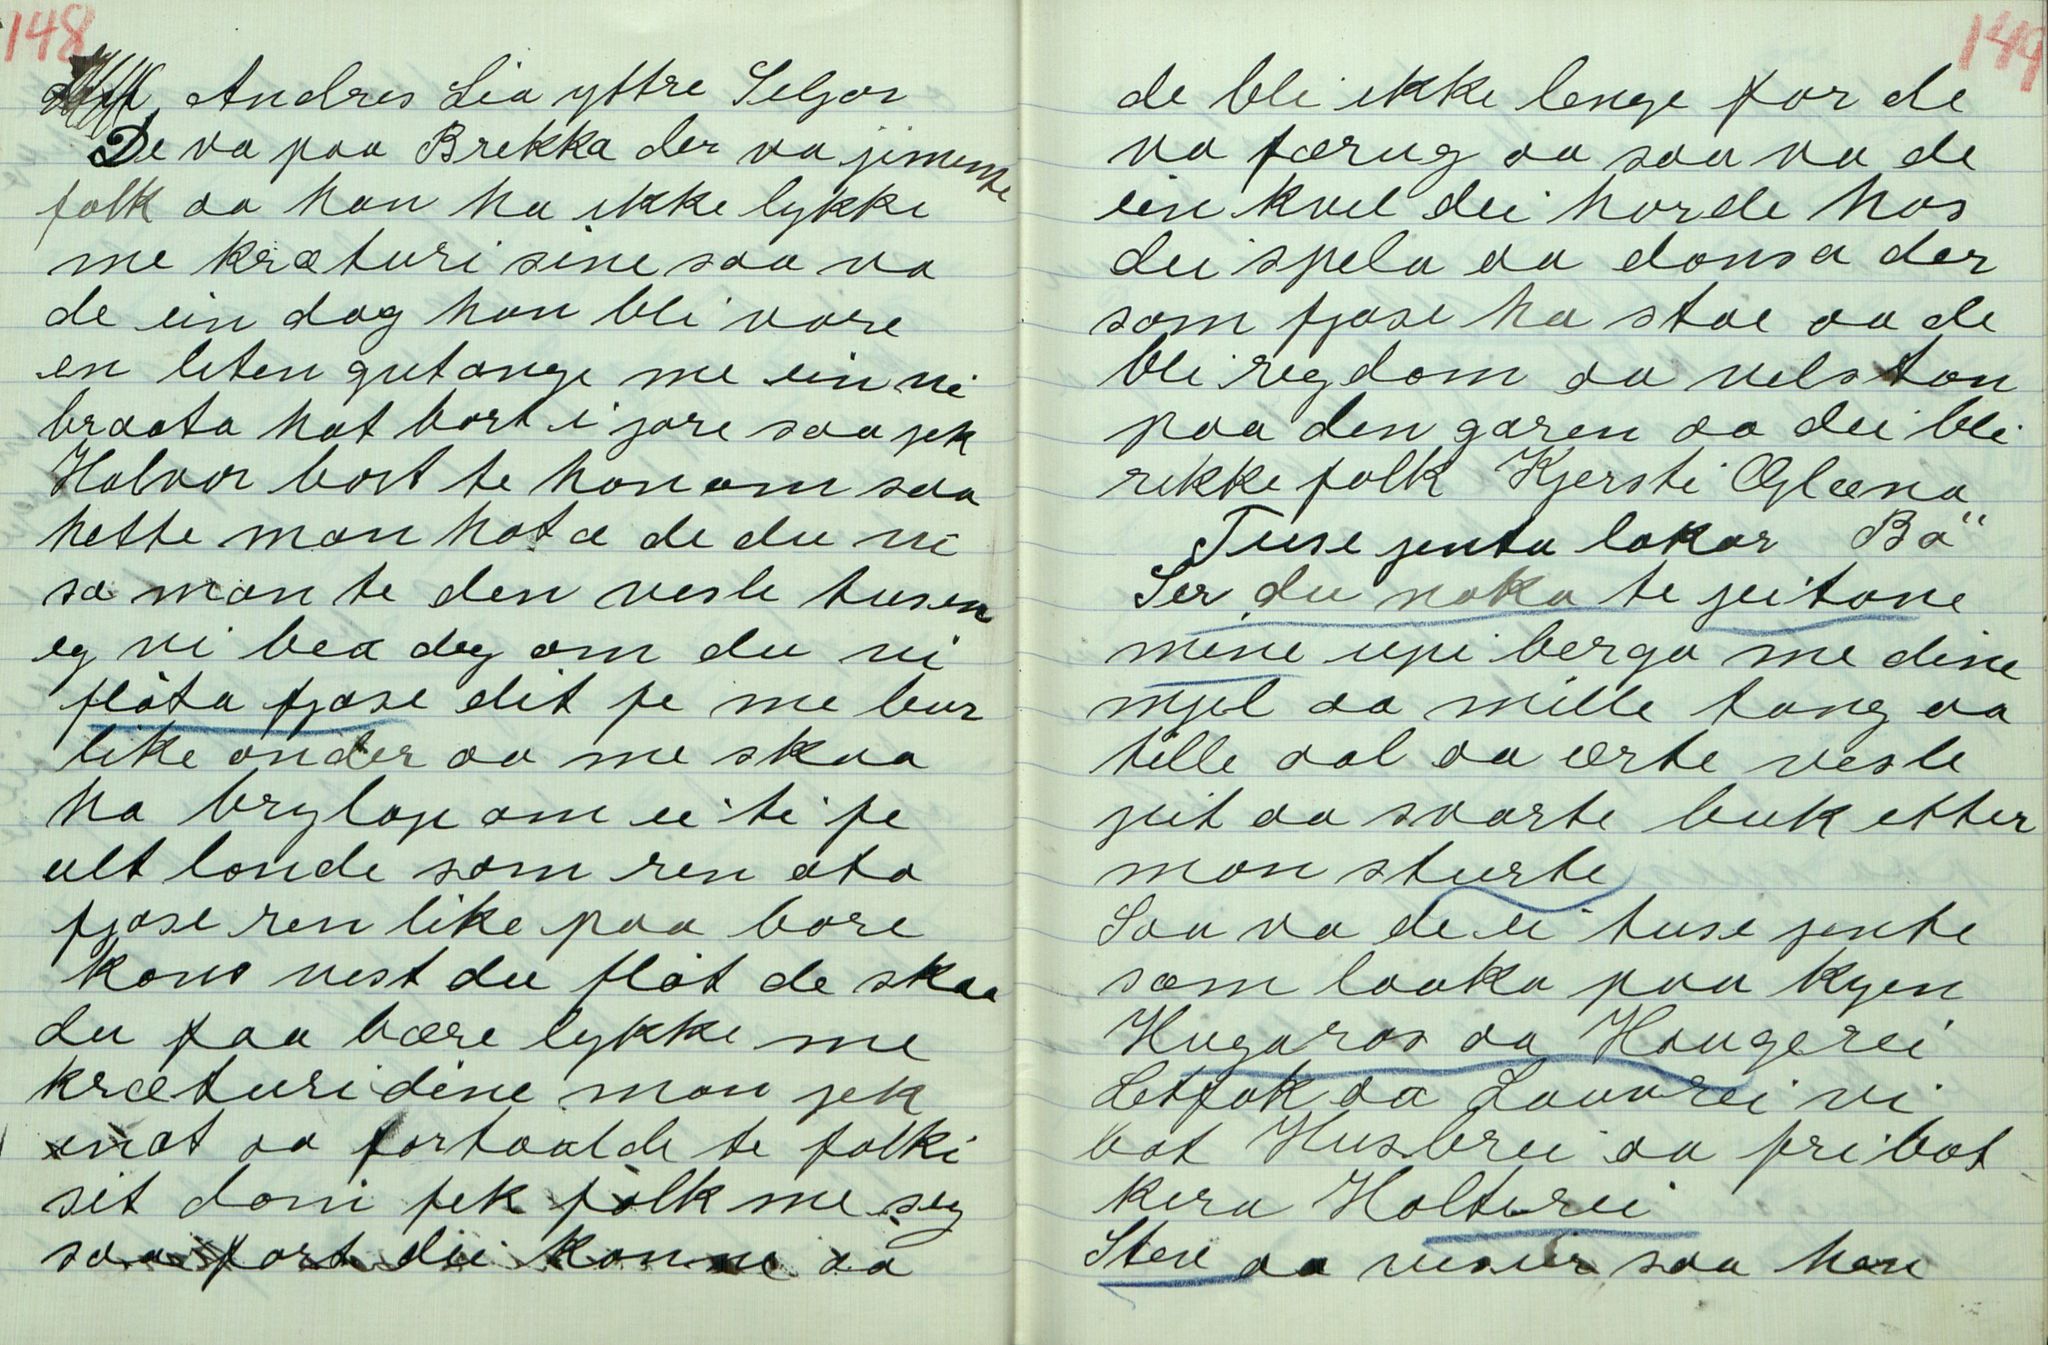 148
Andres Lia yttre Seljor
De va paa Brekka der va jimenne
folk aa han ha ikke lykke
me kræturi sine saa va
de ein dag han bli vare
en leten gutange me ein ni
braata hat bort i jore saa jek
Halvor bort te honom saa
hette mon hat æ de du vi
sa mon te den vesle tusen
eg vi bea deg om du vi
flöta fjøse dit fe me bur
like onder aa me skaa
ha brylop om ei ti fe
alt londe som ren ata
fjøse ren like paa bore
kons vest du flöt de skaa
du faa bære lykke me
kræturi dine mon jek
inat aa fortaalde te folki
sit dom fek folk me seg
saa fort dei konne aa
149
de bli ikke lenge for de
va færug aa saa va de
ein kvel dei horde hos
dei spela aa donsa der
som fjøse ha stae aa de
bli regdom aa velston
paa den garen aa dei bli
rikke folk Kjersti Oglæna
Tuse jenta lokar Bö
Ser du noko te jeitane
mine upi berga me dine
mjel aa mille tong aa
tille aal aa ærte vesle
jeit aa svarte buk etter
mon sturte
Saa va de ei tuse jente
som laaka paa kyen
Hugaros aa Haugerei
Letfok aa Lauvrei vi
bot Husbrei aa fri bot
kera Holterei
Stere aa viser saa hen